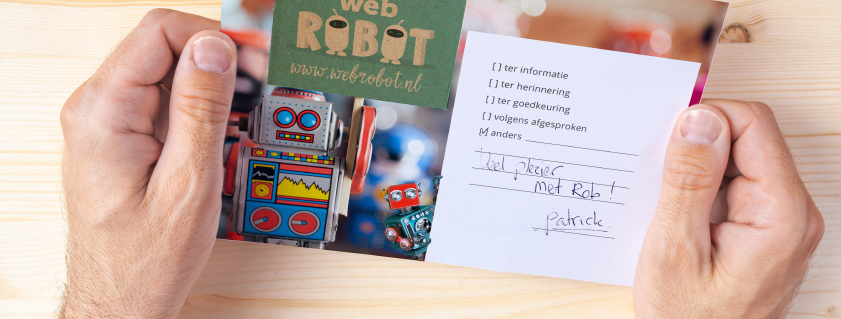 web
ROBOT
www.webrobot.nl
[ ] ter informatie
[ ] ter herinnering
[ ] ter goedkeuring
[ ] volgens afgesproken
[x] anders
Veel plezier
met Rob!
Patrick